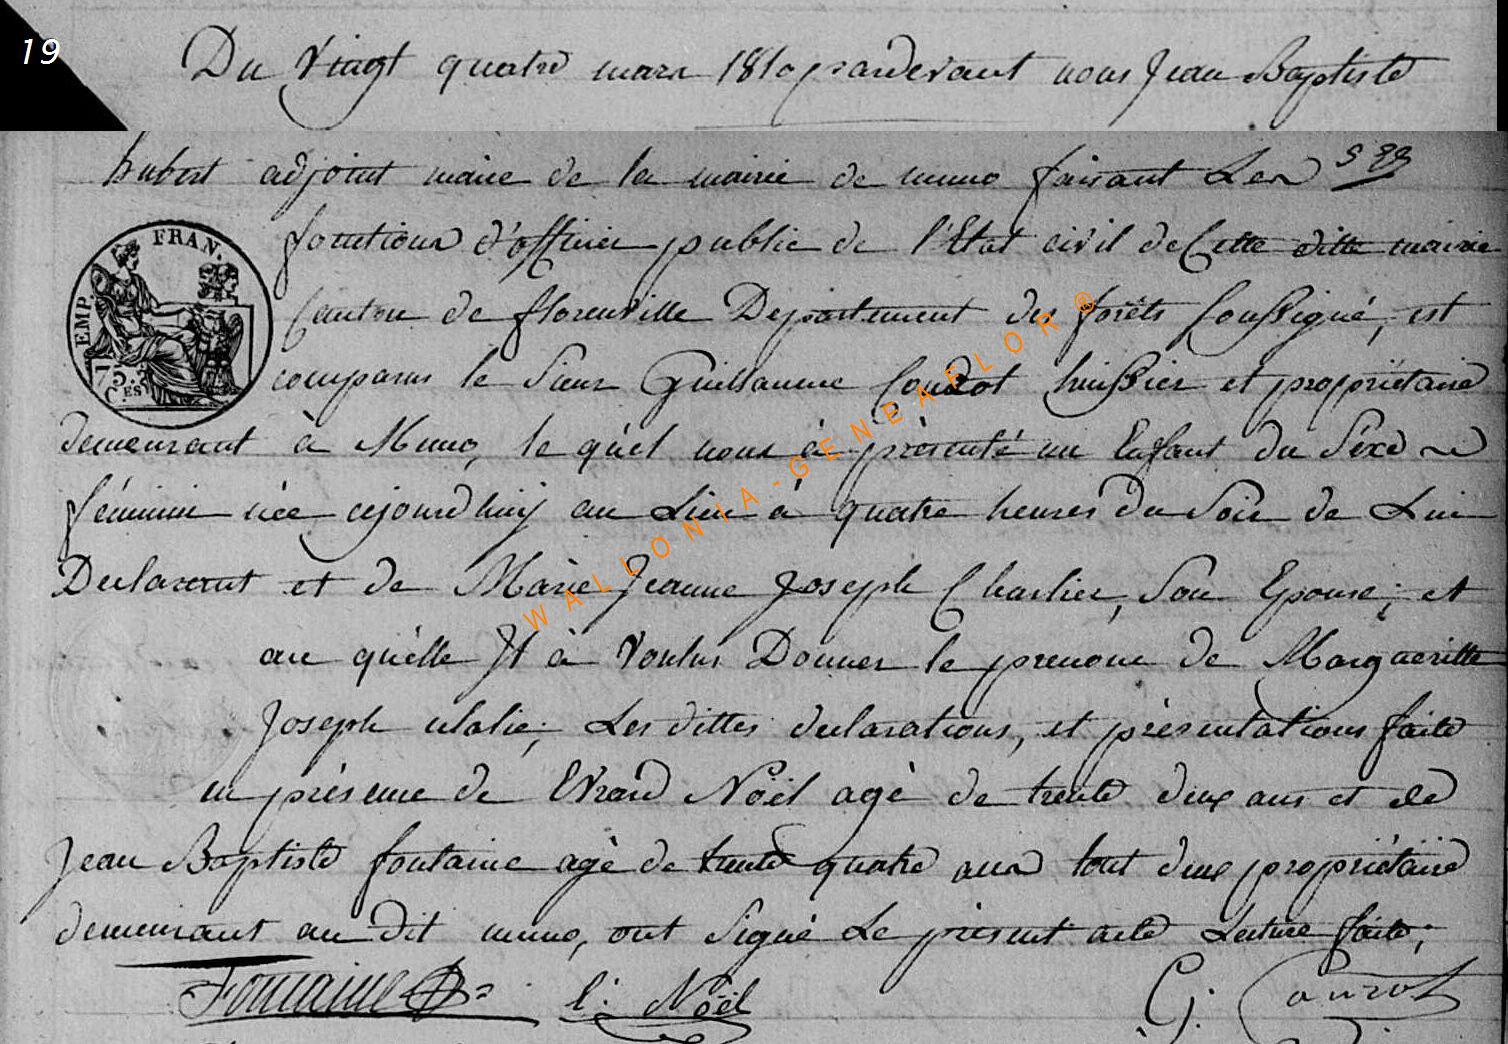 19
Du Vingt quatre mars 1810 pardevant nous Jean Baptiste
hubert adjoint maire de la mairie de muno faisant Les
fonctions d'officier public de l'Etat civil de Cette ditte mairie
Canton de florenville Departement des forêts Soussigné, est
comparus le Sieur Guillaume Conrot huissier et propriètaire
demeurant à Muno, le quèl nous à présenté un Enfant du Sèxe
féminin née cejourdhuij au Lieu à quatre heures du Soir de Lui
Declarant et de Marie Jeanne Joseph Charlier, Son Epouse; et
au quèlle Il à Voulus Donner le prenom de Margueritte
Joseph ulalie; Les dittes declarations, et présentations faite
en présence de EVrard Noël agè de trente deux ans et de
Jean Baptiste fontaine agè de trente quatre ans tout deux propriètaire
demeurant au dit muno, ont Signé Le présent acte Lecture faite;
Fontaine
E: Noël
G: Conrot
EMP. FRAN.
75 C.ES
WALLONIA-GENEAFLOR®